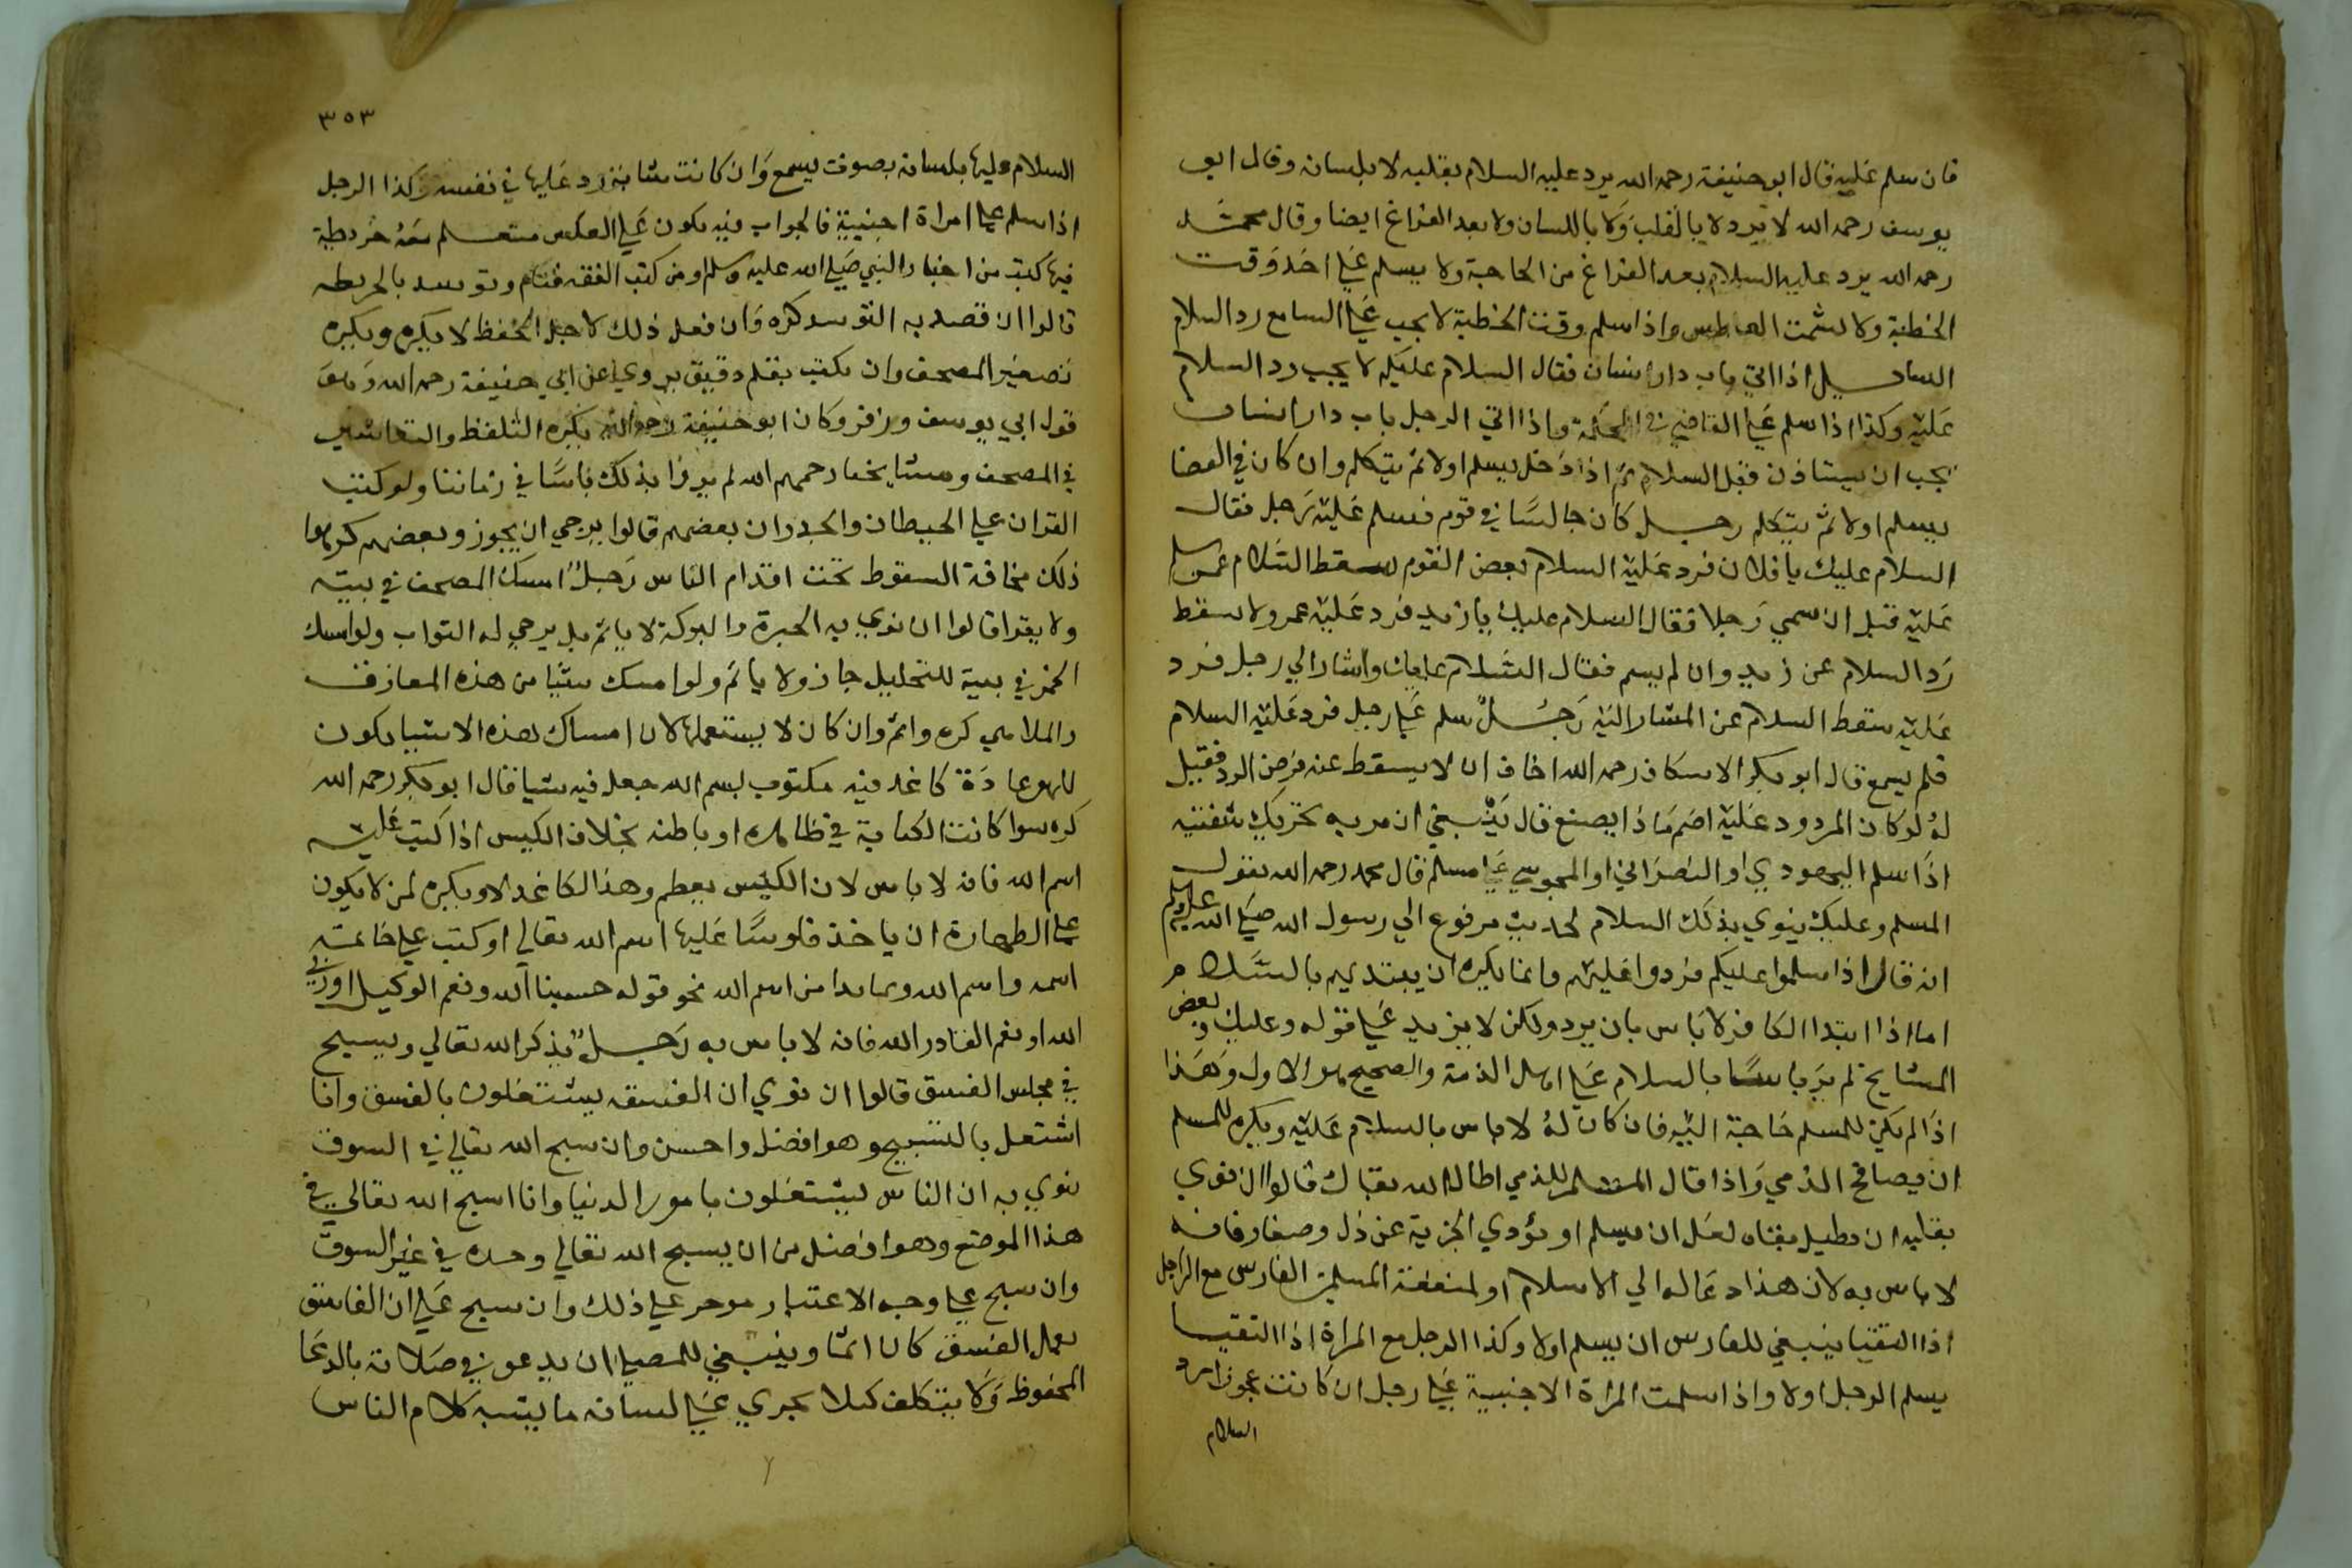 فان سلم عليه قال ابو حنيفة رحمه الله يرد عليه السلام بقلبه لا بلسانه وقال ابو
يوسف رحمه الله لا يرد لا بالقلب ولا باللسان ولا بعد الفراغ ايضا وقال محمد
رحمه الله يرد عليه السلام بعد الفراغ من الحاجة ولا يسلم على احد وقت
الخطبة ولا يشمت العاطس واذا سلم وقت الخطبة لا يجب على السامع رد السلام
السايل اذا اتي باب دار انسان فقال السلام عليكم لا يجب رد السلام
عليه وكذا اذا سلم على القاضي في المحكمة واذا اتي الرجل باب دار انسان
يجب ان يستاذن قبل السلام ثم اذا دخل يسلم اولا ثم يتكلم وان كان في الفضا
يسلم اولا ثم يتكلم رجل كان جالسا في قوم فسلم عليه رجل فقال
السلام عليك يا فلان فرد عليه السلام بعض القوم سقط السلام عمن سلم
عليه قيل ان سمي رجلا فقال السلام عليك يا زيد فرد عليه عمرو لا يسقط
رد السلام عن زيد وان لم يسم فقال السلام عليك واشار الي رجل فرد
عليه سقط السلام عن المشار اليه رجل سلم على رجل فرد عليه السلام
فلم يسمع قال ابو بكر الاسكاف رحمه الله اخاف ان لا يسقط عنه فرض الرد فقيل
له لو كان المردود عليه اصم ماذا يصنع قال ينبغي ان يريه تحريك شفتيه
اذا سلم اليهودي او النصراني او المجوسي على مسلم قال محمد رحمه الله يقول
المسلم وعليك ينوي بذلك السلام لحديث مرفوع الي رسول الله صلى الله عليه وسلم
انه قال اذا سلموا عليكم فردوا عليهم وانما يكره ان يبتديهم بالسلام
اما اذا ابتدا الكافر لا باس بان يرد ولكن لا يزيد على قوله وعليك وبعض
المشايخ لم ير باسا بالسلام على اهل الذمة والصحيح هو الاول وهذا
اذا لم يكن للمسلم حاجة اليه فان كان له لا باس بالسلام عليه ويكره للمسلم
ان يصافح الذمي واذا قال المسلم للذمي اطال الله بقاك قالوا ان نوي
بقلبه ان يطيل بقاه لعل ان يسلم او يؤدي الجزية عن ذل وصغار فانه
لا باس به لان هذا دعا له الي الاسلام او لمنفعة المسلمين الفارس مع الراجل
اذا التقيا ينبغي للفارس ان يسلم اولا وكذا الرجل مع المراة اذا التقيا
يسلم الرجل اولا واذا سلمت المراة الاجنبية على رجل ان كانت عجوزا رد
السلام
٣٥٣
السلام عليها بلسانه بصوت يسمع وان كانت شابة رد عليها في نفسه وكذا الرجل
اذا سلم على امراة اجنبية فالجواب فيه يكون على العكس متعلم معه خريطة
فيها كتب من اخبار النبي صلى الله عليه وسلم ومن كتب الفقه فنام وتوسد بالخريطه
قالوا ان قصد به التوسد كره وان فعل ذلك لاجل الحفظ لا يكره ويكره
تصغير المصحف وان يكتب بقلم دقيق يروي عن ابي حنيفة رحمه الله وهو
قول ابي يوسف وزفر وكان ابو حنيفة رحمه الله يكره التلفظ والتعاشير
في المصحف ومشايخنا رحمهم الله لم يروا بذلك باسا في زماننا ولو كتب
القران على الحيطان والجدران بعضهم قالوا يرجي ان يجوز وبعضهم كرهوا
ذلك مخافة السقوط تحت اقدام الناس رجل امسك المصحف في بيته
ولا يقرا قالوا ان نوي به الخيرة والبركة لا ياثم بل يرجي له الثواب ولو امسك
الخمر في بيته للتخليل جاز ولا ياثم ولو امسك شيا من هذه المعازف
والملاهي كره واثم وان كان لا يستعملها لان امساك هذه الاشيا يكون
للهو عادة كاغد فيه مكتوب بسم الله جعل فيه شيا قال ابو بكر رحمه الله
كره سوا كانت الكتابة في ظاهره او باطنه بخلاف الكيس اذا كتب عليه
اسم الله فانه لا باس لان الكيس يعظم وهذا الكاغد لا ويكره لمن لا يكون
على الطهارة ان ياخذ فلوسا عليها اسم الله تعالي او كتب على خاتمه
اسمه واسم الله وما بدا من اسم الله نحو قوله حسبنا الله ونعم الوكيل او ربي
الله او نعم القادر الله فانه لا باس به رجل يذكر الله تعالي ويسبح
في مجلس الفسق قالوا ان نوي ان الفسقه يشتغلون بالفسق وانا
اشتغل بالتسبيح وهو افضل واحسن وان سبح الله تعالي في السوق
ينوي به ان الناس يشتغلون بامور الدنيا وانا اسبح الله تعالي في
هذا الموضع وهو افضل من ان يسبح الله تعالي وحده في غير السوق
وان سبح على وجه الاعتبار يوجر على ذلك وان سبح على ان الفاسق
يعمل الفسق كان اثما وينبغي للمصلي ان يدعو في صلاته بالدعا
المحفوظ ولا يتكلف كيلا يجري على لسانه ما يشبه كلام الناس